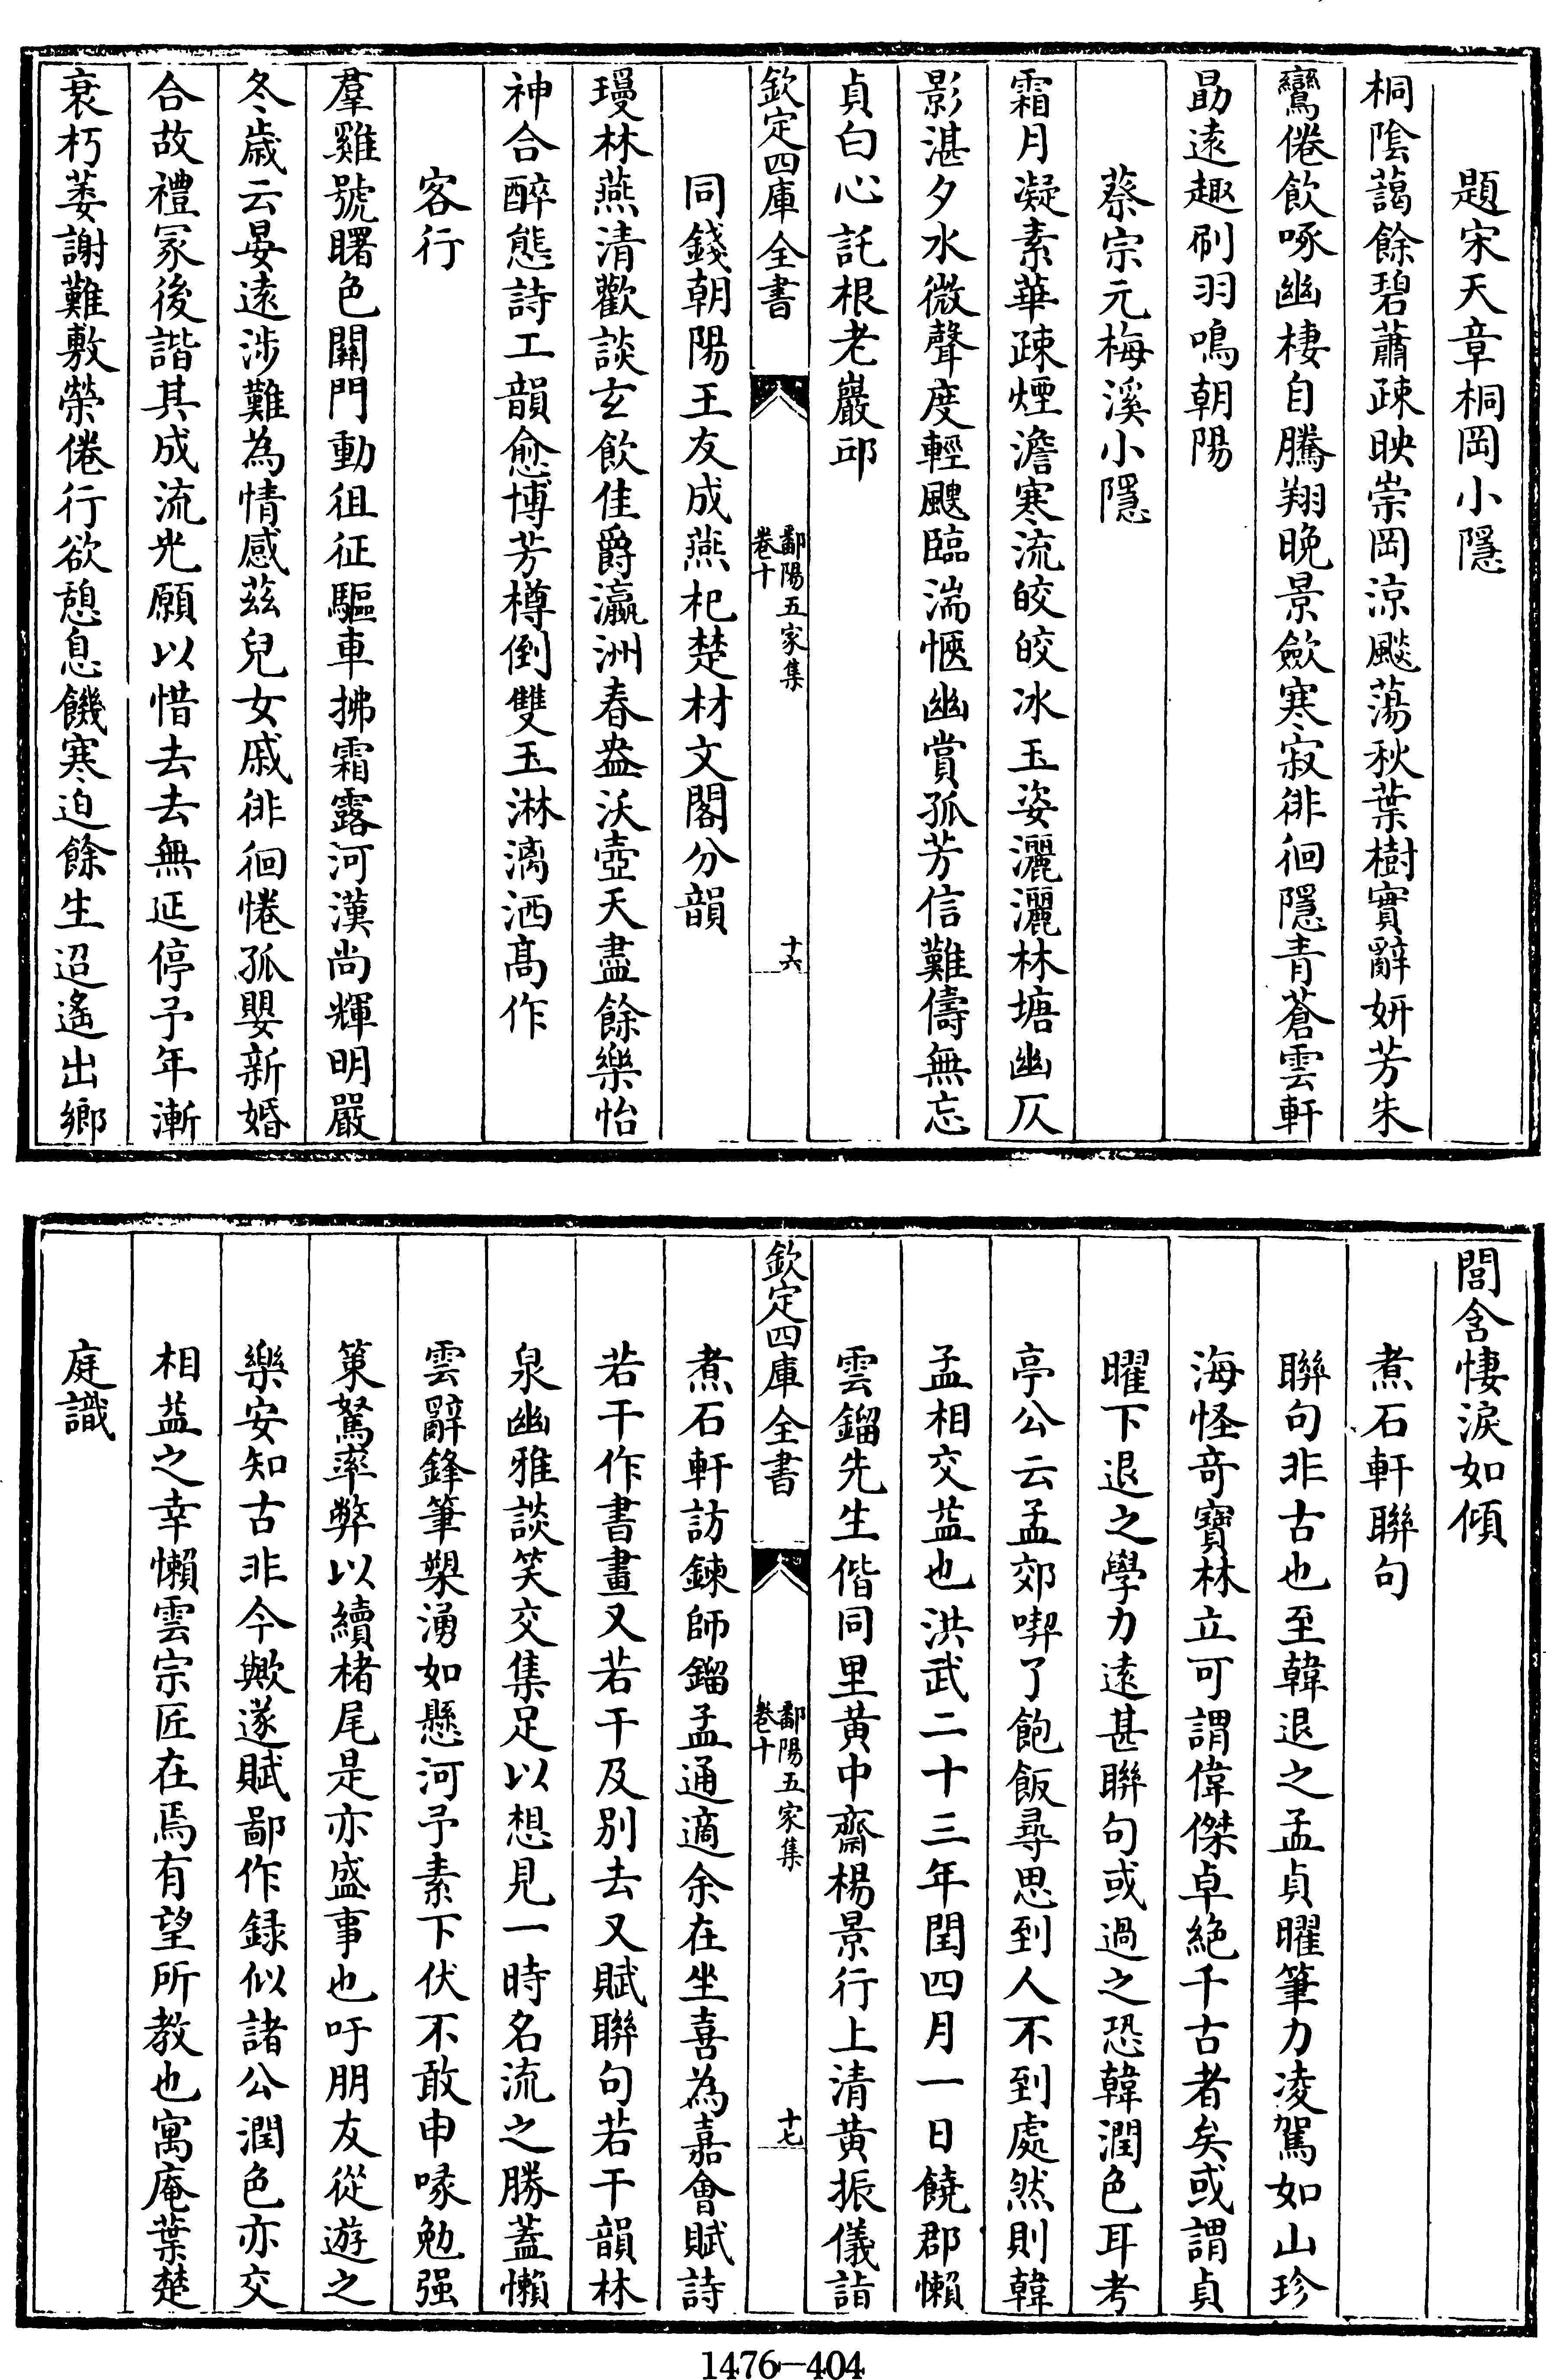 題宋天章桐岡小隱
桐陰藹餘碧蕭疎映崇岡涼飈蕩秋葉樹實辭妍芳朱
鸞倦飲啄幽棲自騰翔晚景歛寒寂徘徊隱青蒼雲軒
勗遠趣刷羽鳴朝陽
蔡宗元梅溪小隱
霜月凝素華疎煙澹寒流皎皎冰玉姿灑灑林塘幽仄
影湛夕水微聲度輕颸臨湍愜幽賞孤芳信難儔無忘
貞白心託根老巖邱
欽定四庫全書
鄱陽五家集
卷十
十六
同錢朝陽王友成燕杞楚材文閣分韻
璦林燕清歡談玄飲佳爵瀛洲春盎沃壺天盡餘樂怡
神合醉態詩工韻愈博芳樽倒雙玉淋漓洒高作
客行
羣雞號曙色關門動徂征驅車拂霜露河漢尚輝明嚴
冬歲云晏遠涉難為情感茲兒女戚徘徊惓孤嬰新婚
合故禮冢後諧其成流光願以惜去去無延停予年漸
衰朽萎謝難敷榮倦行欲憩息饑寒迫餘生迢遙出鄉
閭含悽淚如傾
煮石軒聯句
聯句非古也至韓退之孟貞曜筆力凌駕如山珍
海怪奇寶林立可謂偉傑卓絕千古者矣或謂貞
曜下退之學力遠甚聯句或過之恐韓潤色耳考
亭公云孟郊喫了飽飯尋思到人不到處然則韓
孟相交益也洪武二十三年閏四月一日饒郡懶
雲鎦先生偕同里黃中齋楊景行上清黃振儀詣
欽定四庫全書
鄱陽五家集
卷十
十七
煮石軒訪鍊師鎦孟通適余在坐喜為嘉會賦詩
若干作書畫又若干及別去又賦聯句若干韻林
泉幽雅談笑交集足以想見一時名流之勝蓋懶
雲辭鋒筆槊湧如懸河予素下伏不敢申喙勉强
策駑率弊以續楮尾是亦盛事也吁朋友從遊之
樂安知古非今歟遂賦鄙作録似諸公潤色亦交
相益之幸懶雲宗匠在焉有望所教也寓庵葉楚
庭識
1476—404